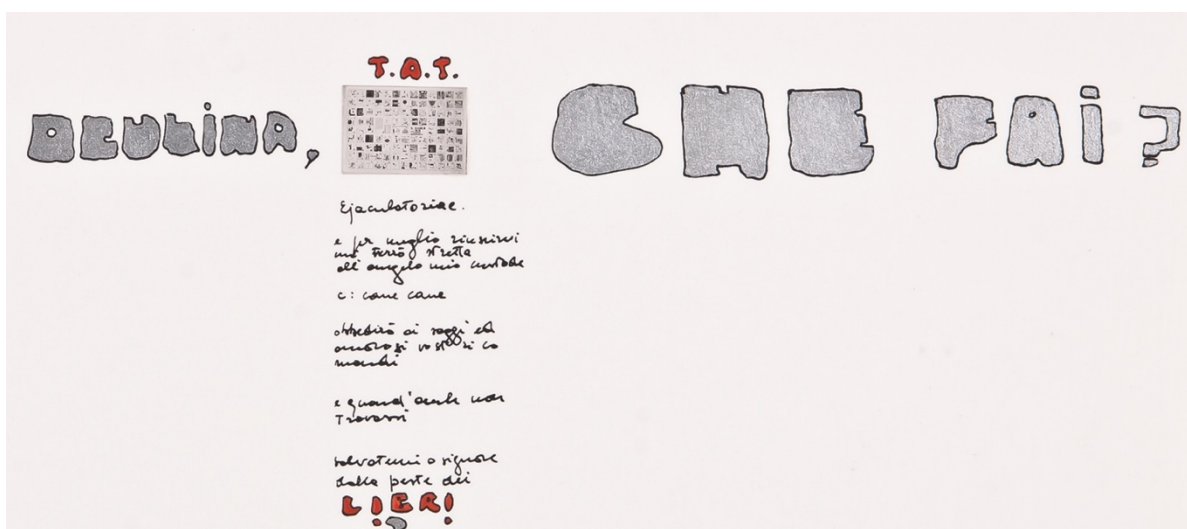 T.A.T.
CHE FAI ?
Ejaculatoriae.
e per meglio riuscirvi
mi Terrò stretta
all'angelo mio custode
c: come cane
obbedirò ai saggi ed
amorosi vostri co
mandi
e quand'anche non
Trovassi
salvatemi o signore
dalla peste dei
LIBRI